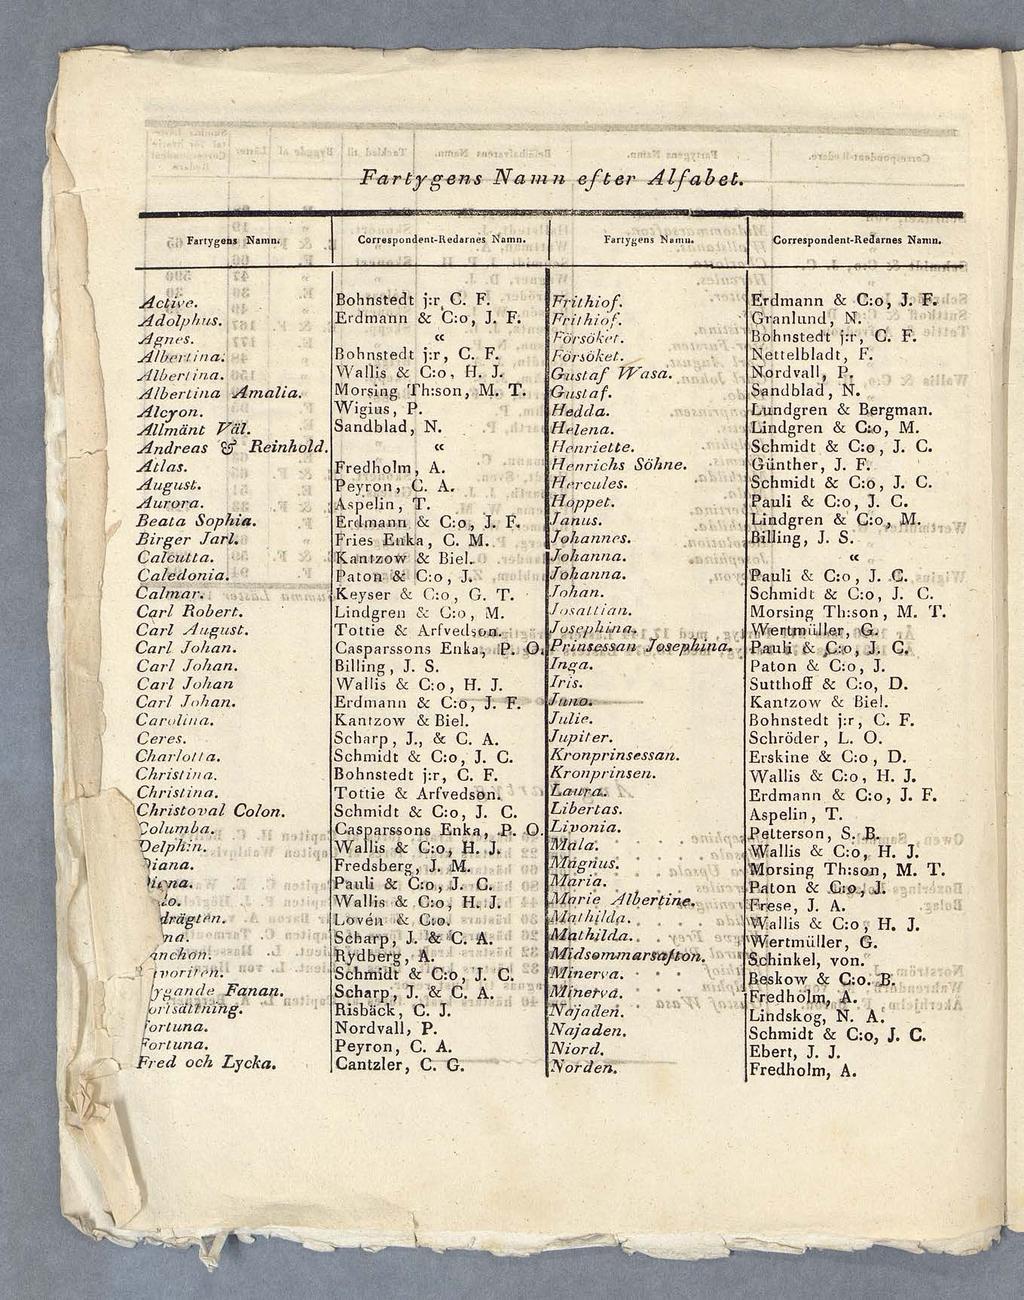 Fartygens Namn efter Alfabet.
Fartygens Namn. Correspondent-Redarnes Namn.
Active. Bohnstedt j:r C. F.
Adolphus. Erdmann & C:o, J. F.
Agnes. «
Albertina. Bohnstedt j:r, C. F.
Albertina. Wallis & C:o, H. J.
Albertina Amalia. Morsing Th:son, M. T.
Alcyon. Wigius, P.
Allmänt Väl. Sandblad, N.
Andreas & Reinhold. «
Atlas. Fredholm, A.
August. Peyron, C. A.
Aurora. Aspelin, T.
Beata Sophia. Erdmann & C:o, J. F.
Birger Jarl. Fries Enka, C. M.
Calcutta. Kantzow & Biel.
Caledonia. Paton & C:o, J.
Calmar. Keyser & C:o, G. T.
Carl Robert. Lindgren & C:o, M.
Carl August. Tottie & Arfvedson.
Carl Johan. Casparssons Enka, P. O.
Carl Johan. Billing, J. S.
Carl Johan Wallis & C:o, H. J.
Carl Johan. Erdmann & C:o, J. F.
Carolina. Kantzow & Biel.
Ceres. Scharp, J., & C. A.
Charlotta. Schmidt & C:o, J. C.
Christina. Bohnstedt j:r, C. F.
Christina. Tottie & Arfvedson.
Christoval Colon. Schmidt & C:o, J. C.
Columba. Casparssons Enka, P. O.
Delphin. Wallis & C:o, H. J.
Diana. Fredsberg, J. M.
Diana. Pauli & C:o, J. C.
do. Wallis & C:o, H. J.
drägten. Lovén & C:o.
na. Scharp, J. & C. A.
anchon. Rydberg, A.
voriten. Schmidt & C:o, J. C.
ygande Fanan. Scharp, J. & C. A.
ortsättning. Risbäck, C. J.
Fortuna. Nordvall, P.
Fortuna. Peyron, C. A.
Fred och Lycka. Cantzler, C. G.
Fartygens Namn. Correspondent-Redarnes Namn.
Frithiof. Erdmann & C:o, J. F.
Frithiof. Granlund, N.
Försöket. Bohnstedt j:r, C. F.
Försöket. Nettelbladt, F.
Gustaf Wasa. Nordvall, P.
Gustaf. Sandblad, N.
Hedda. Lundgren & Bergman.
Helena. Lindgren & C:o, M.
Henriette. Schmidt & C:o, J. C.
Henrichs Söhne. Günther, J. F.
Hercules. Schmidt & C:o, J. C.
Hoppet. Pauli & C:o, J. C.
Janus. Lindgren & C:o, M.
Johannes. Billing, J. S.
Johanna. «
Johanna. Pauli & C:o, J. C.
Johan. Schmidt & C:o, J. C.
Josattian. Morsing Th:son, M. T.
Josephina. Wertmüller, G.
Prinsessan Josephina. Pauli & C:o, J. C.
Inga. Paton & C:o, J.
Iris. Sutthoff & C:o, D.
Juno. Kantzow & Biel.
Julie. Bohnstedt j:r, C. F.
Jupiter. Schröder, L. O.
Kronprinsessan. Erskine & C:o, D.
Kronprinsen. Wallis & C:o, H. J.
Laura. Erdmann & C:o, J. F.
Libertas. Aspelin, T.
Livonia. Petterson, S. B.
Mala. Wallis & C:o, H. J.
Magnus. Morsing Th:son, M. T.
Maria. Paton & C:o, J.
Marie Albertine. Frese, J. A.
Mathilda. Wallis & C:o, H. J.
Mathilda. Wertmüller, G.
Midsommarsafton. Schinkel, von.
Minerva. Beskow & C:o. B.
Minerva. Fredholm, A.
Najaden. Lindskog, N. A.
Najaden. Schmidt & C:o, J. C.
Niord. Ebert, J. J.
Norden. Fredholm, A.